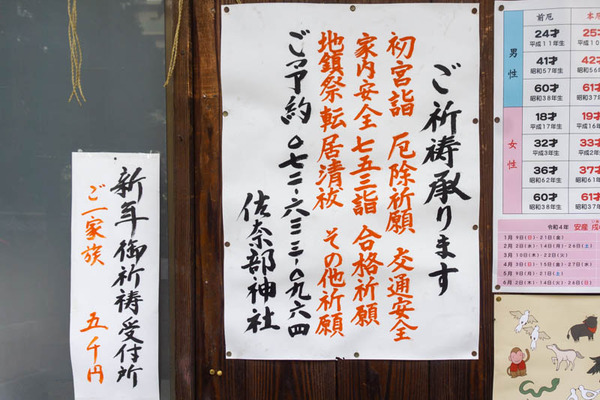 ご祈祷承ります
初宮詣 厄除祈願 交通安全
家内安全 七五三詣 合格祈願
地鎮祭 転居清祓 その他祈願
ご予約 〇七二-六三三-〇九六四
佐奈部神社
新年御祈祷受付所
ご一家族 五千円
前厄 本厄
男性
24才 25
平成11年生 平成10
41才 42
昭和57年生
60才 61
昭和38年生
女性
18才 19
平成17年生
32才 33
平成3年生
36才 37
昭和62年生
60才 61
昭和38年生
令和4年 安産 戌
1月 9日(日)・21日(金)
2月 2日(水)・14日(月)・26日(土)
3月 10日(木)・22日(火)
4月 3日(日)・15日(金)・27日(水)
5月 9日(月)・21日(土)
6月 2日(木)・14日(火)・26日(日)